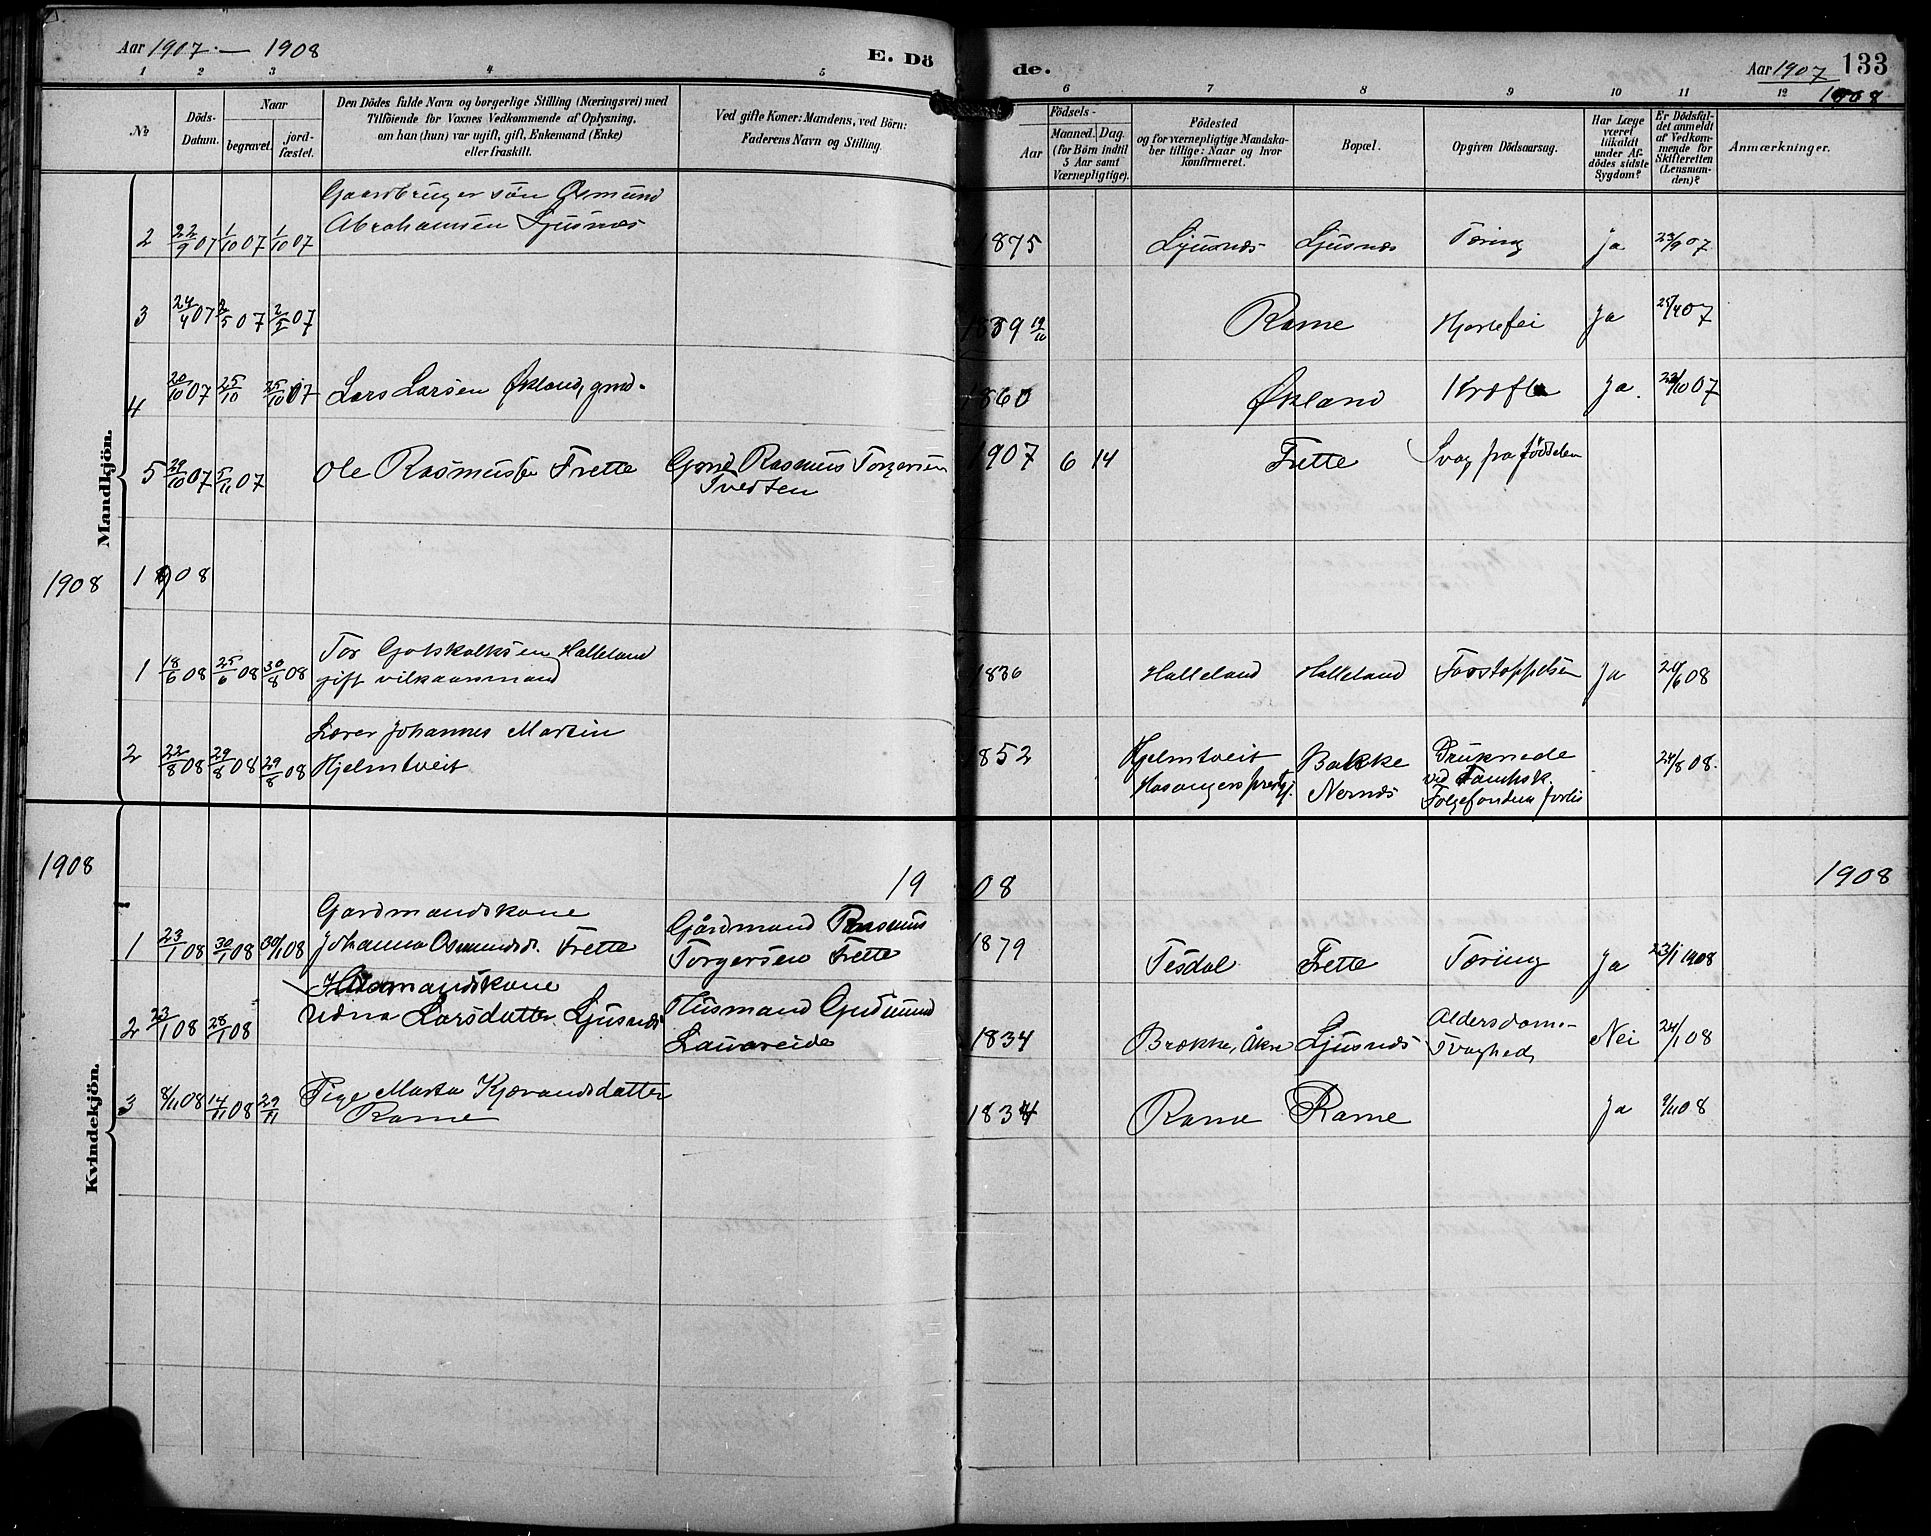 Aar 1907 — 1908
E. Dö
de.
Aar 1907
1908
133
1 2 3 4 5
6 7 8 9 10 11 12
No
Döds-
Datum.
Naar
begravet.
jord-
fæstet.
Den Dödes fulde Navn og borgerlige Stilling (Næringsvei) med
Tilföiende for Voxnes Vedkommende af Oplysning,
om han (hun) var ugift, gift, Enkemand (Enke)
eller fraskilt.
Ved gifte Koner: Mandens, ved Börn:
Faderens Navn og Stilling.
Födsels-
Aar
Maaned. Dag.
(for Börn indtil
5 Aar samt
Værnepligtige).
Födested
og for værnepligtige Mandska-
ber tillige: Naar og hvor
konfirmeret.
Bopæl.
Opgiven Dödsaarsag.
Har Læge
været
tilkaldt
under Af-
dödes sidste
Sygdom?
Er Dödsfal-
det anmeldt
af Vedkom-
mende for
Skifteretten
(Lensman-
den)?
Anmærkninger.
Mandkjön.
Gaardbruger søn Osmund
2 22/9 07 1/10 07 1/10 07 Abrahamsen Ljusnæs 1875 Ljusnæs Ljusnæs Tæring Ja 23/9 07
3 24/4 07 2/5 07 2/5 07 1889 19/10 Rame Hjertefei Ja 25/4 07
4 20/10 07 25/10 25/10 07 Lars Larsen Økland, gmd. 1860 Økland Kræft Ja. 22/10 07
5 29/10 07 5/11 07 Ole Rasmussen Frette Gmd Rasmus Torgersen 1907 6 14 Frette Svag fra fødselen
Tvedten
1908 1908
Tor Gotskalksen Halleland
1 18/6 08 25/6 08 30/8 08 gift vilkaarmand 1836 Halleland Halleland Forstoppelse Ja 20/6 08
Lærer Johannes Martin
2 22/8 08 29/8 08 29/8 08 Hjelmtveit 1852 Hjelmtveit Bakke Druknede 24/8 08.
Hosangers prestgj. Nernes ved Dampsk.
Folgefondens forlis
1908 1908 1908
Kvindekjön.
Gardmandskone
1 23/1 08 30/1 08 30/1 08 Johanna Osmundsd. Frette Gårdmand Rasmus 1879 Tesdal Frette Tæring Ja 23/1 1908
Torgersen Frette
Husmandskone
2 23/1 08 28/1 08 Larsdatter Ljusnæs Husmand Gudmund 1834 Brække, Åkre Ljusnæs Alderdoms- Nei 24/1 08
svaghed
3 8/11 08 14/11 08 29/11 Pige Marta Kjærandsdatter 1834 Rame Rame Ja 9/11 08
Rame